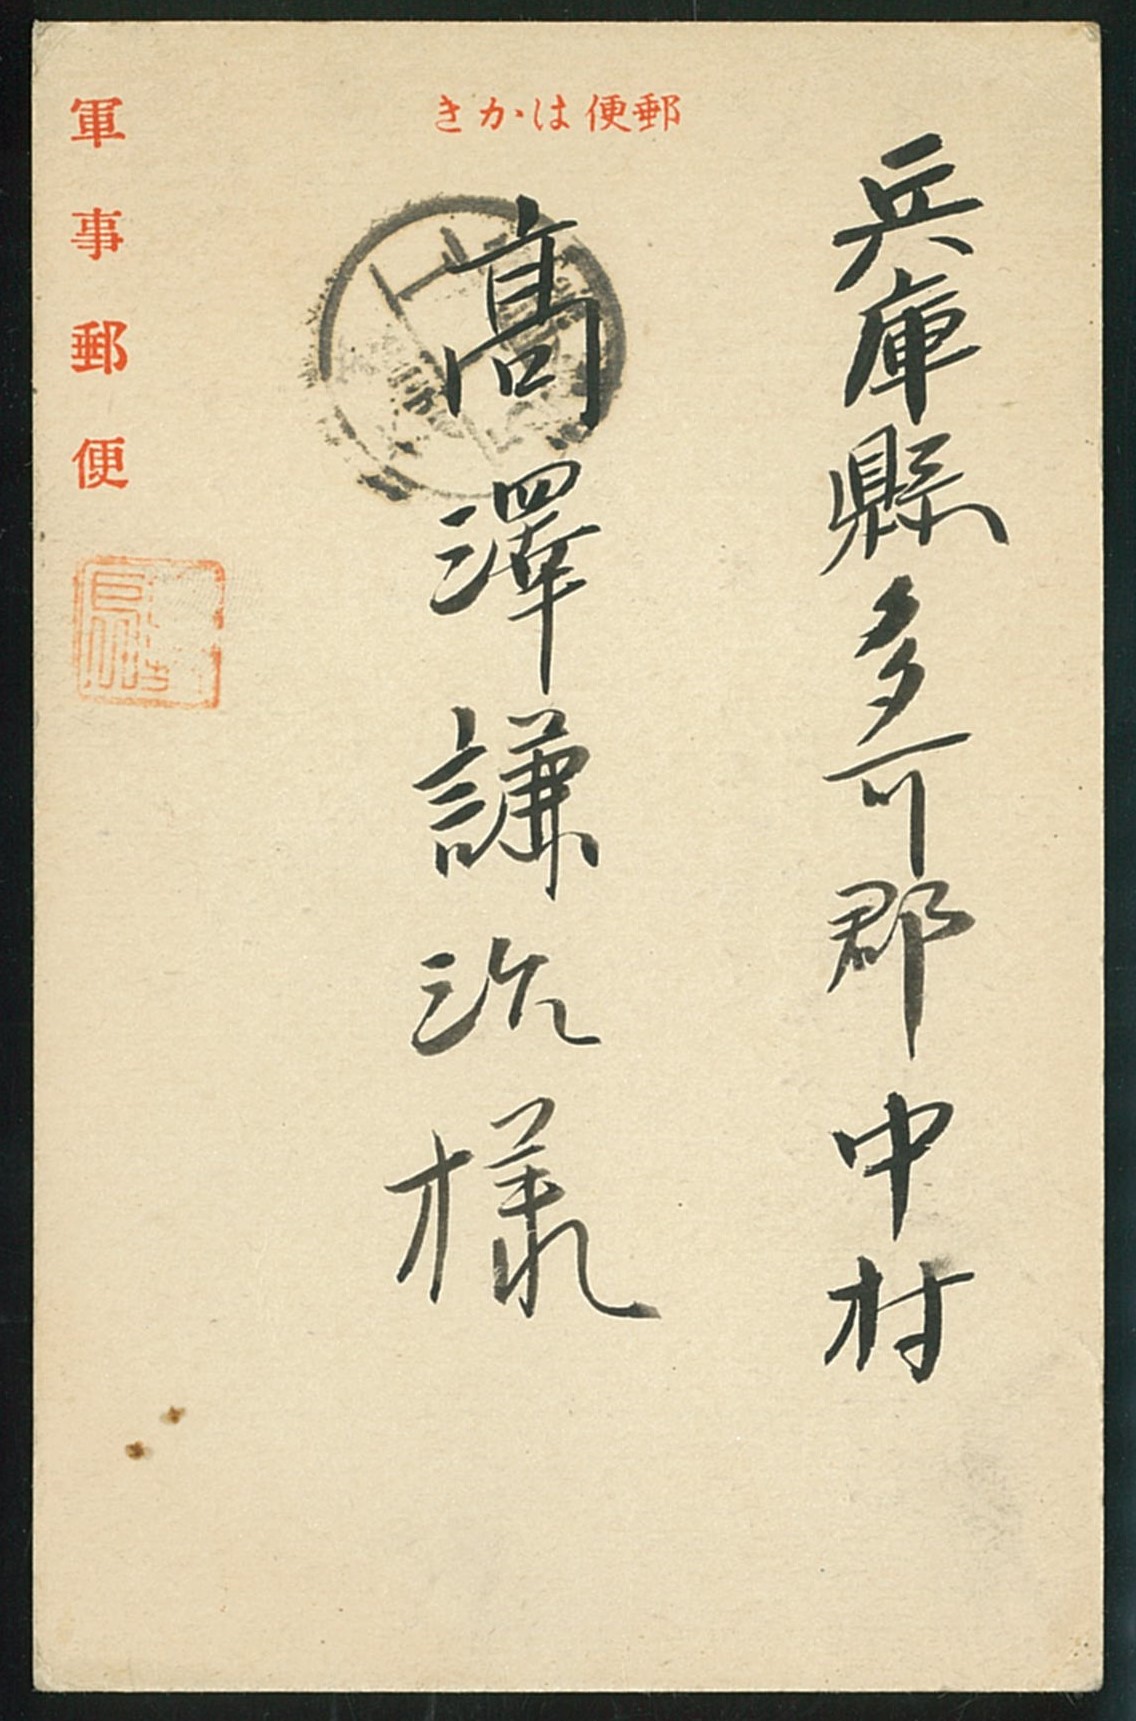 郵便はかき
兵庫縣多可郡中村
高澤謙治様
軍事郵便